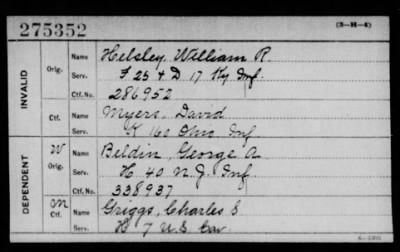 275352 (3-H-4)
INVALID
Orig. Name Helsley, William R.
Serv. F 25 & D 17 Ky Inf.
Ctf. No. 286952
Ctf. Name Myers, David
Serv. K 160 Ohio Inf
DEPENDENT
W Orig. Name Beldin, George A.
Serv. H 40 N.J. Inf.
Ctf. No. 338937
M Ctf. Name Griggs, Charles S.
Serv. 7 U.S. Cav